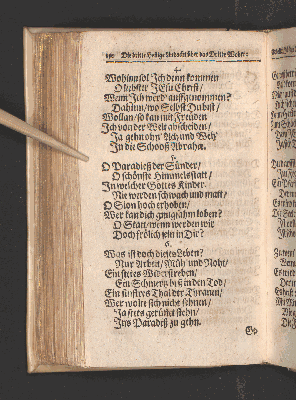 Die dritte Heilige Andacht über das Dritte Wehe:
4.
Wohin sol Ich denn kommen
O liebster JEsu Christ/
Wann Ich werd auffgenommen?
Dahinn/ wo Selbst Du bist/
Wollan/ so kan mit Freuden
Ich von der Welt abscheiden/
Ja gehn ohn' Ach und Weh
In die Schooß Abrahæ.
5.
O Paradieß der Sünder/
O schönste Himmelsstatt/
In welcher Gottes Kinder
Nie werden schwach und matt/
O Sion hoch erhoben/
Wer kan dich gnugsahm loben?
O Statt/ wenn werden wir
Doch frölich sein in Dir?
6.
Was ist doch dieses Leben?
Nur Arbeit/ Müh und Noht/
Ein stetes Widerstreben/
Ein Schmertz biß in den Tod/
Ein finstres Thal der Tyranen/
Wer wolte sich nicht sehnen/
Ja stets gerüstet stehn/
Ins Paradeß zu gehn.